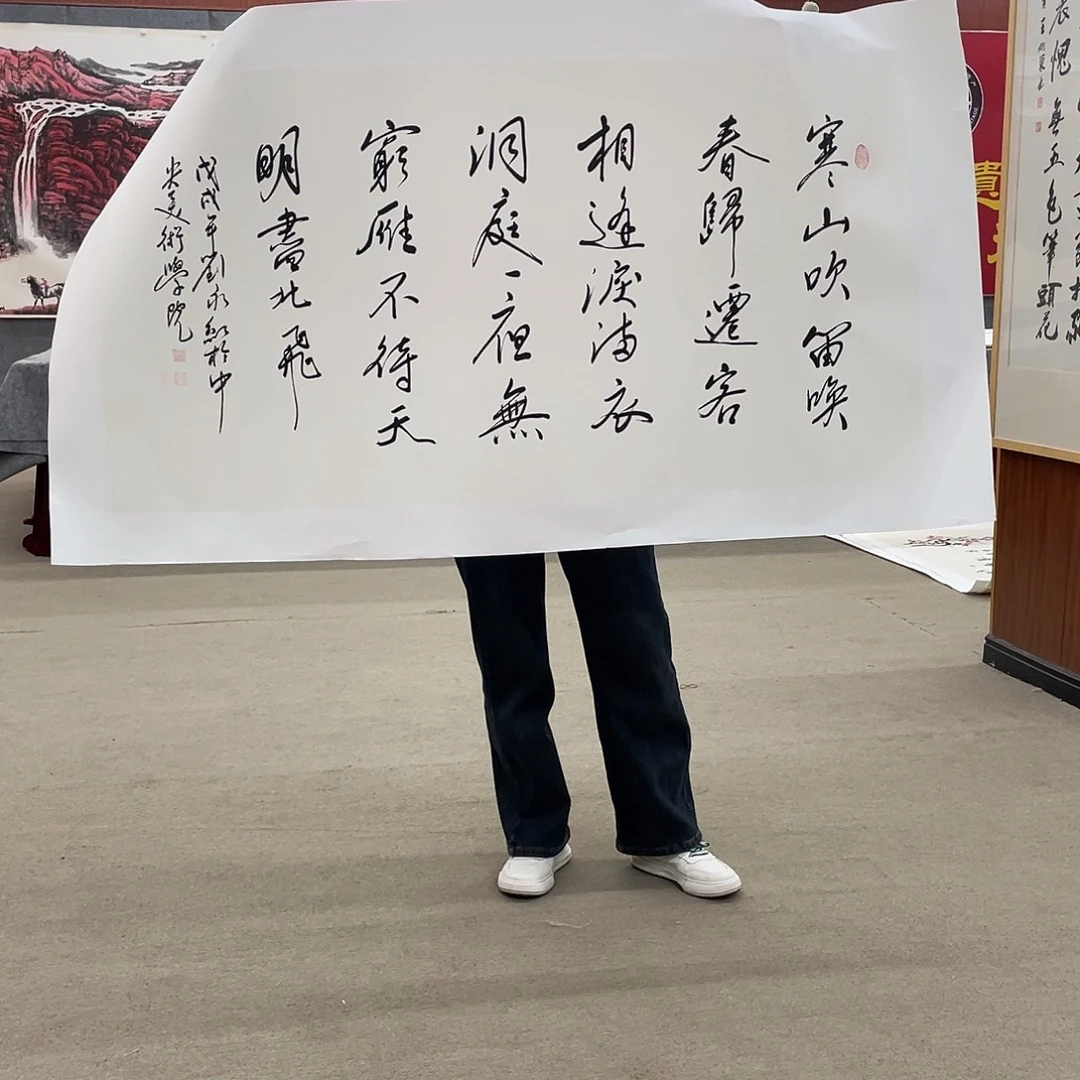 寒山吹笛喚
春歸遷客
相逢淚滿衣
洞庭一夜無
窮雁不待天
明盡北飛
戊戌年劉永紅於中
央美術學院
愧無五色筆頭花